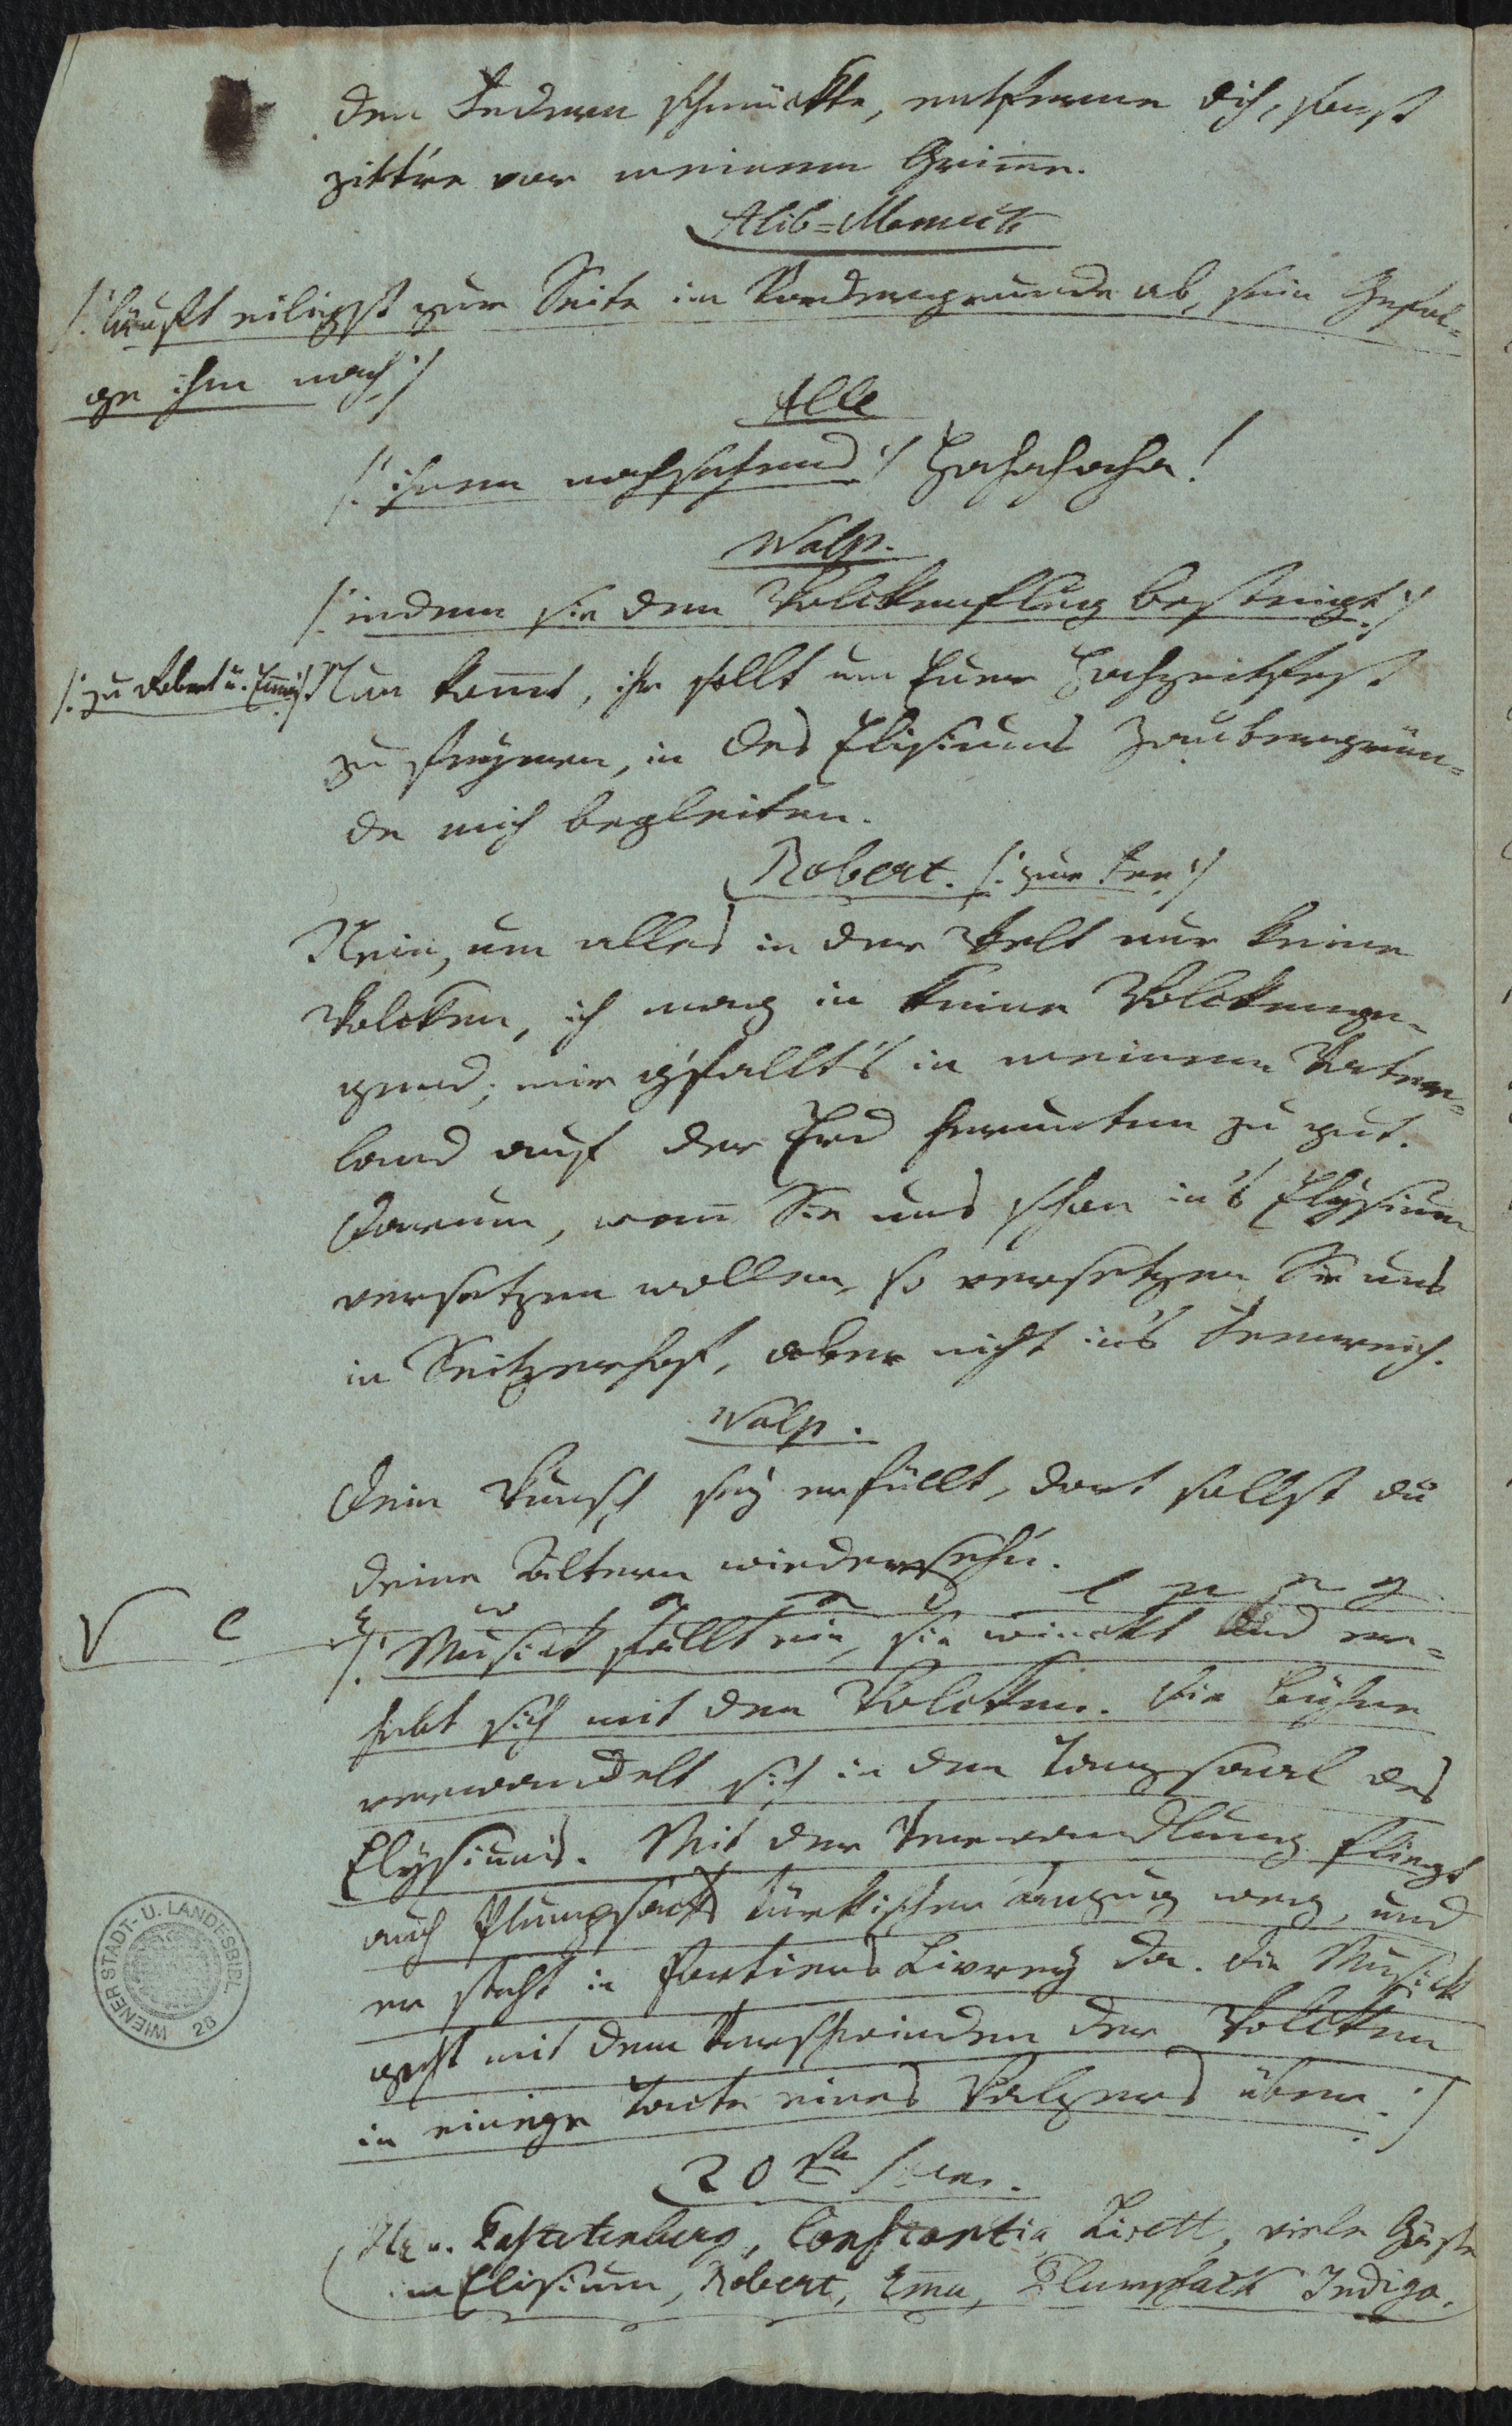 den Federn schmückte, entferne dich, sonst
zitt're vor meinem Grim̅e.
Alib=Memeck
/: läuft eiligst zur Seite im Vordergrunde ab, sein Gefol=
ge ihm nach :/
Alle
/: ihnen nachsehend :/ Hahahaha!
Walp.
/: indem sie den Wolckenflug besteigt :/
/: zu Robert u. Em̅y :/ Nun kom̅t, ihr sollt um Euer Hochzeitfest
zu feyern, in des Elisiums Zaubergrün=
de mich begleiten.
Robert. /: zur Fee :/
Nein, um alles in der Welt nur keine
Wolcken, ich mag in keine Wolckenge=
gend; mir g'fallt's in meinem Vater=
land auf der Erd herunten zu gut.
Darum, wen̅ Sie uns schon in's Elysium
versetzen wollen, so versetzen Sie uns
in Seitzerhof, aber nicht in's Feenreich.
Walp.
Dein Wunsch sey erfüllt, dort sollst du
deine Ältern wiedersehn.
V e r w a n d l u n g
/: Musick fällt ein, sie winckt und er=
hebt sich mit den Wolcken. Die Bühne
verwandelt sich in den Tanzsaal des
Elysiums. Mit der Verwandlung fliegt
auch Plumpsacks türkischer Anzug weg, und
er steht in Portiers Livrey da. Die Musick
geht mit dem Verschwinden der Wolcken
in einige Tacte eines Walzers über :/
20te Scen.
Hr. v. Pastetenburg, Constantia Lisett, viele Gäste
im Elisium, Robert, Em̅a, Plumpsack Indigo.
WIENER STADT- U. LANDESBIBL.